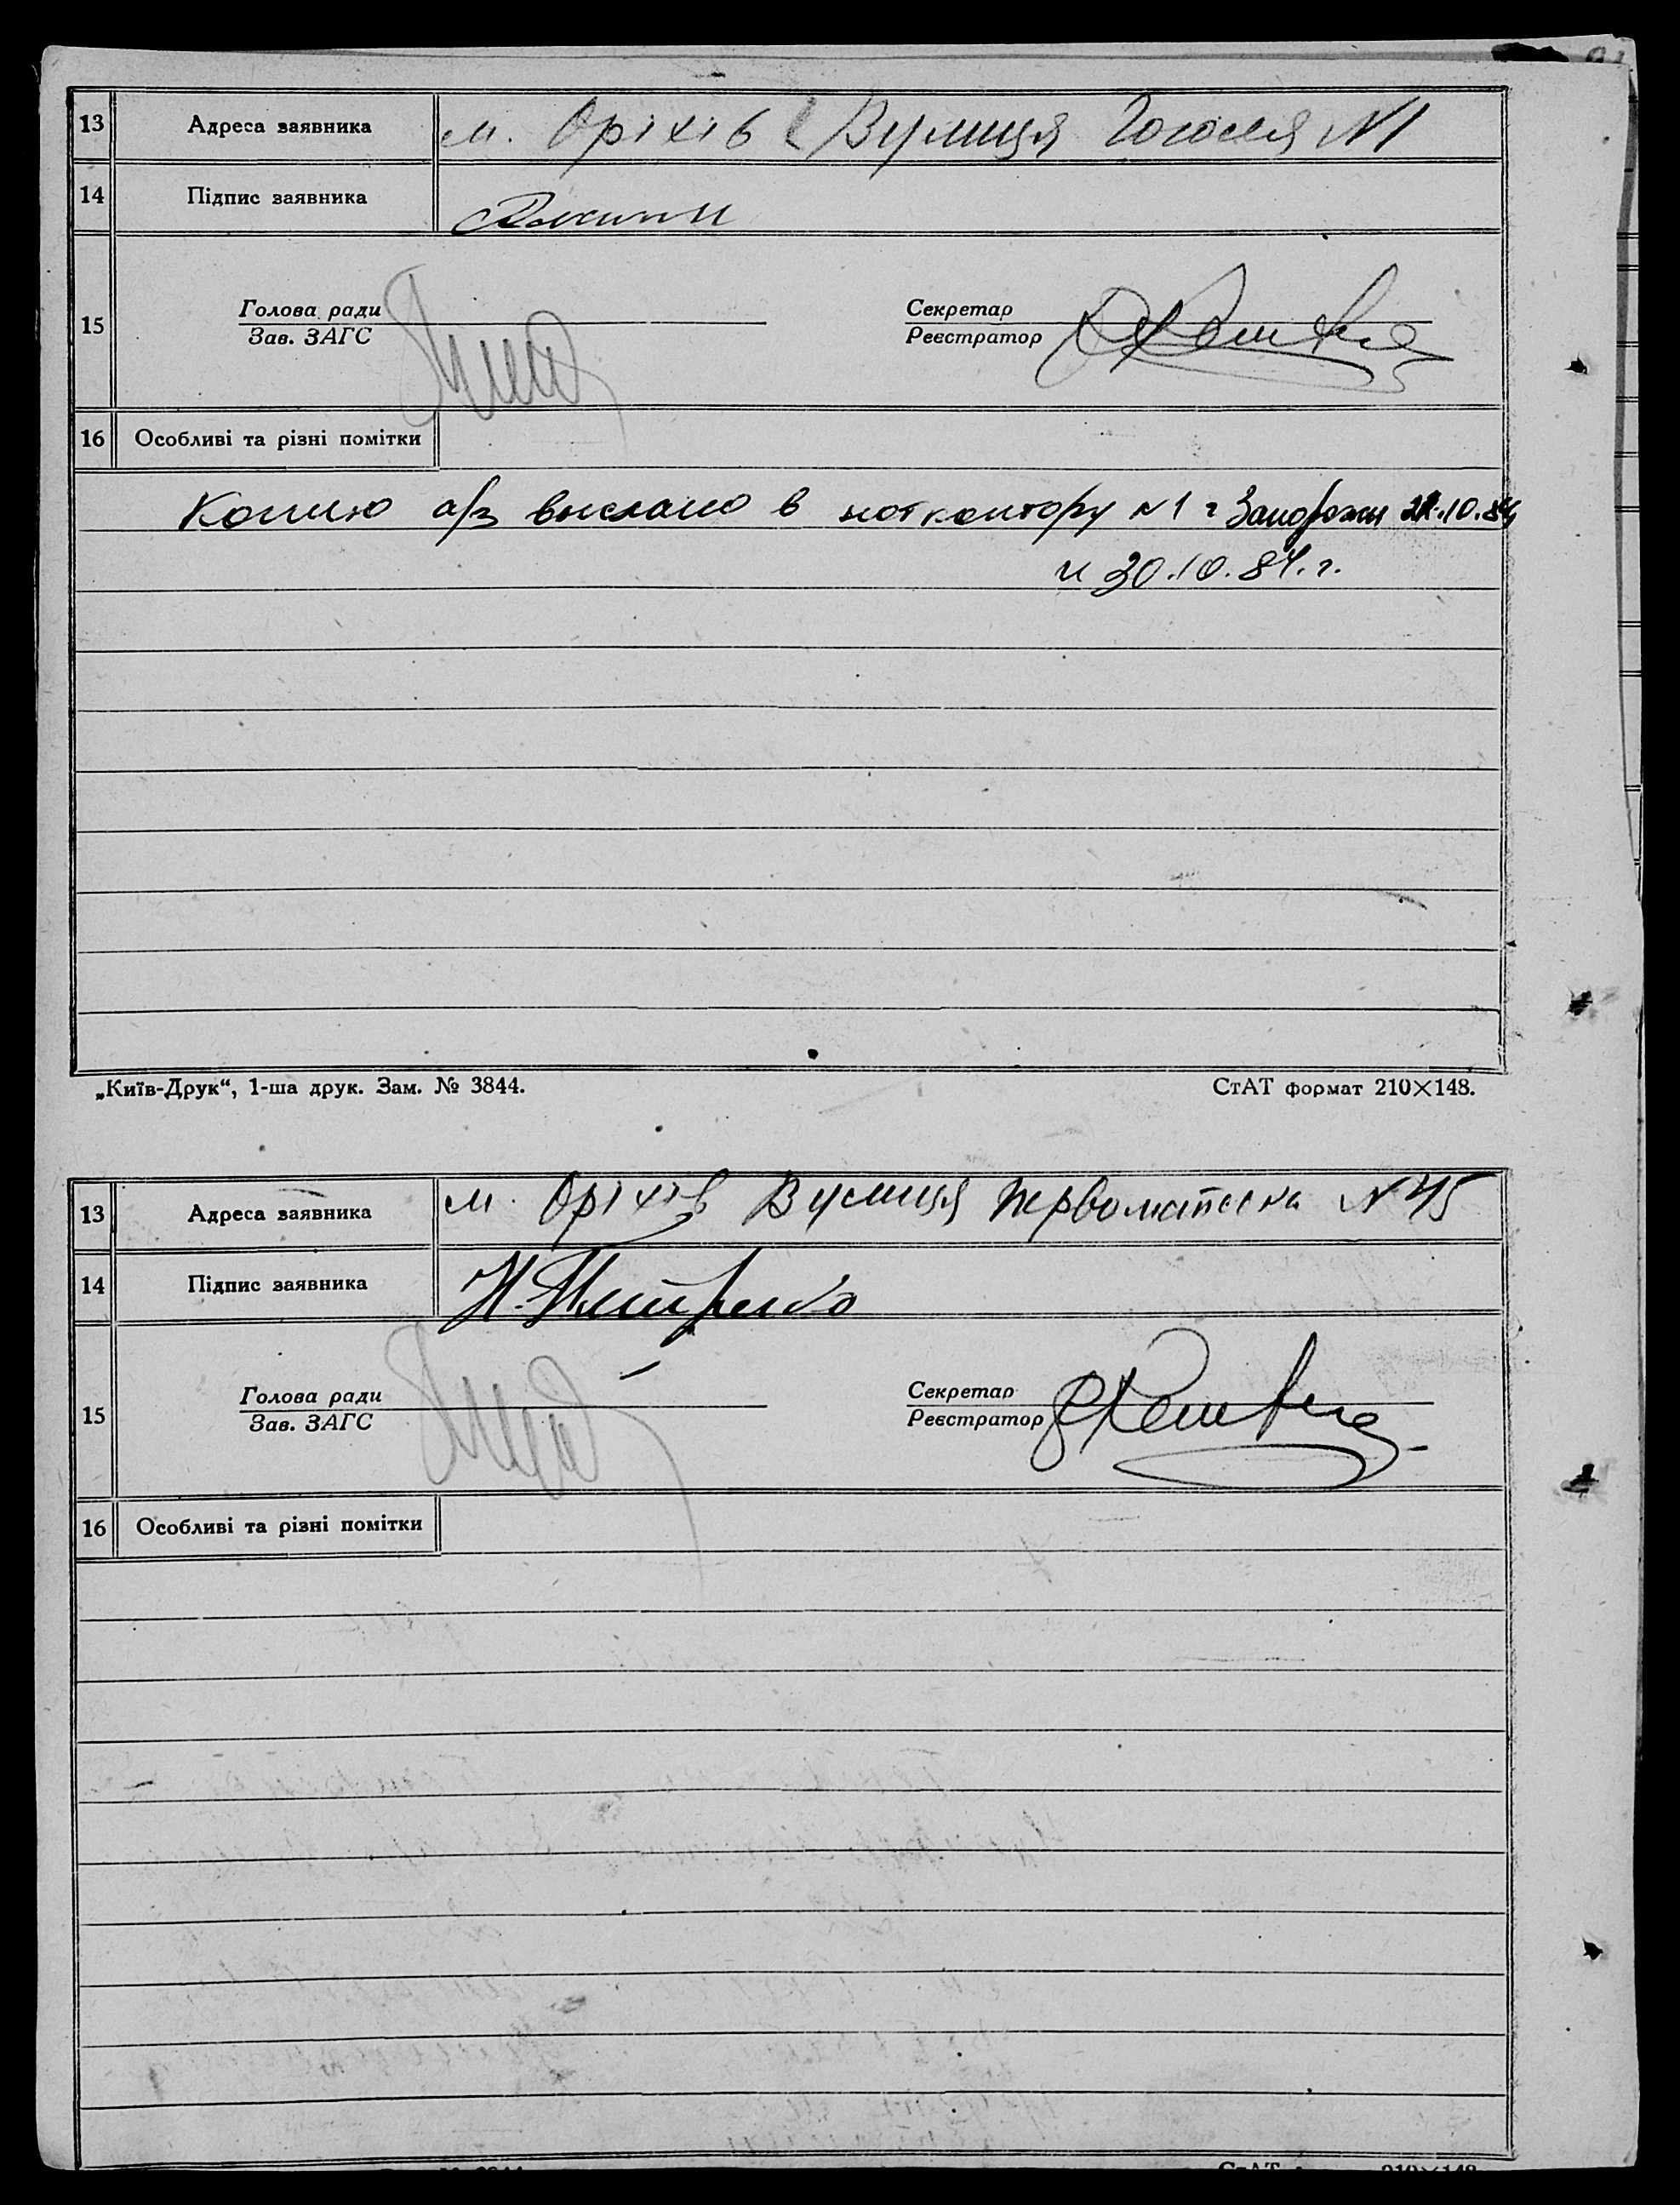 13 Адреса заявника м. Оріхів Вулиця Гоголя N1
14 Підпис заявника
15 Голова ради Зав. ЗАГС Секретар Реєстратор
16 Особливі та різні помітки
Копию а/з выслано в ноткантору N1 г Запорожья .10.84
и 30.10.84.г.
„Київ-Друк“, 1-ша друк. Зам. № 3844. СтАТ формат 210×148.
13 Адреса заявника м. Оріхів Вулиця Первомайська N 45
14 Підпис заявника
15 Голова ради Зав. ЗАГС Секретар Реєстратор
16 Особливі та різні помітки